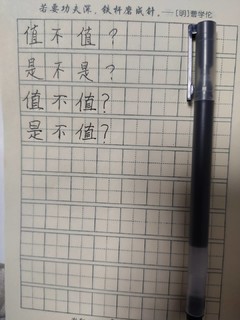 若要功夫深，铁杵磨成针。——[明]曹学佺
值不值？
是不是？
值不值？
是不值？